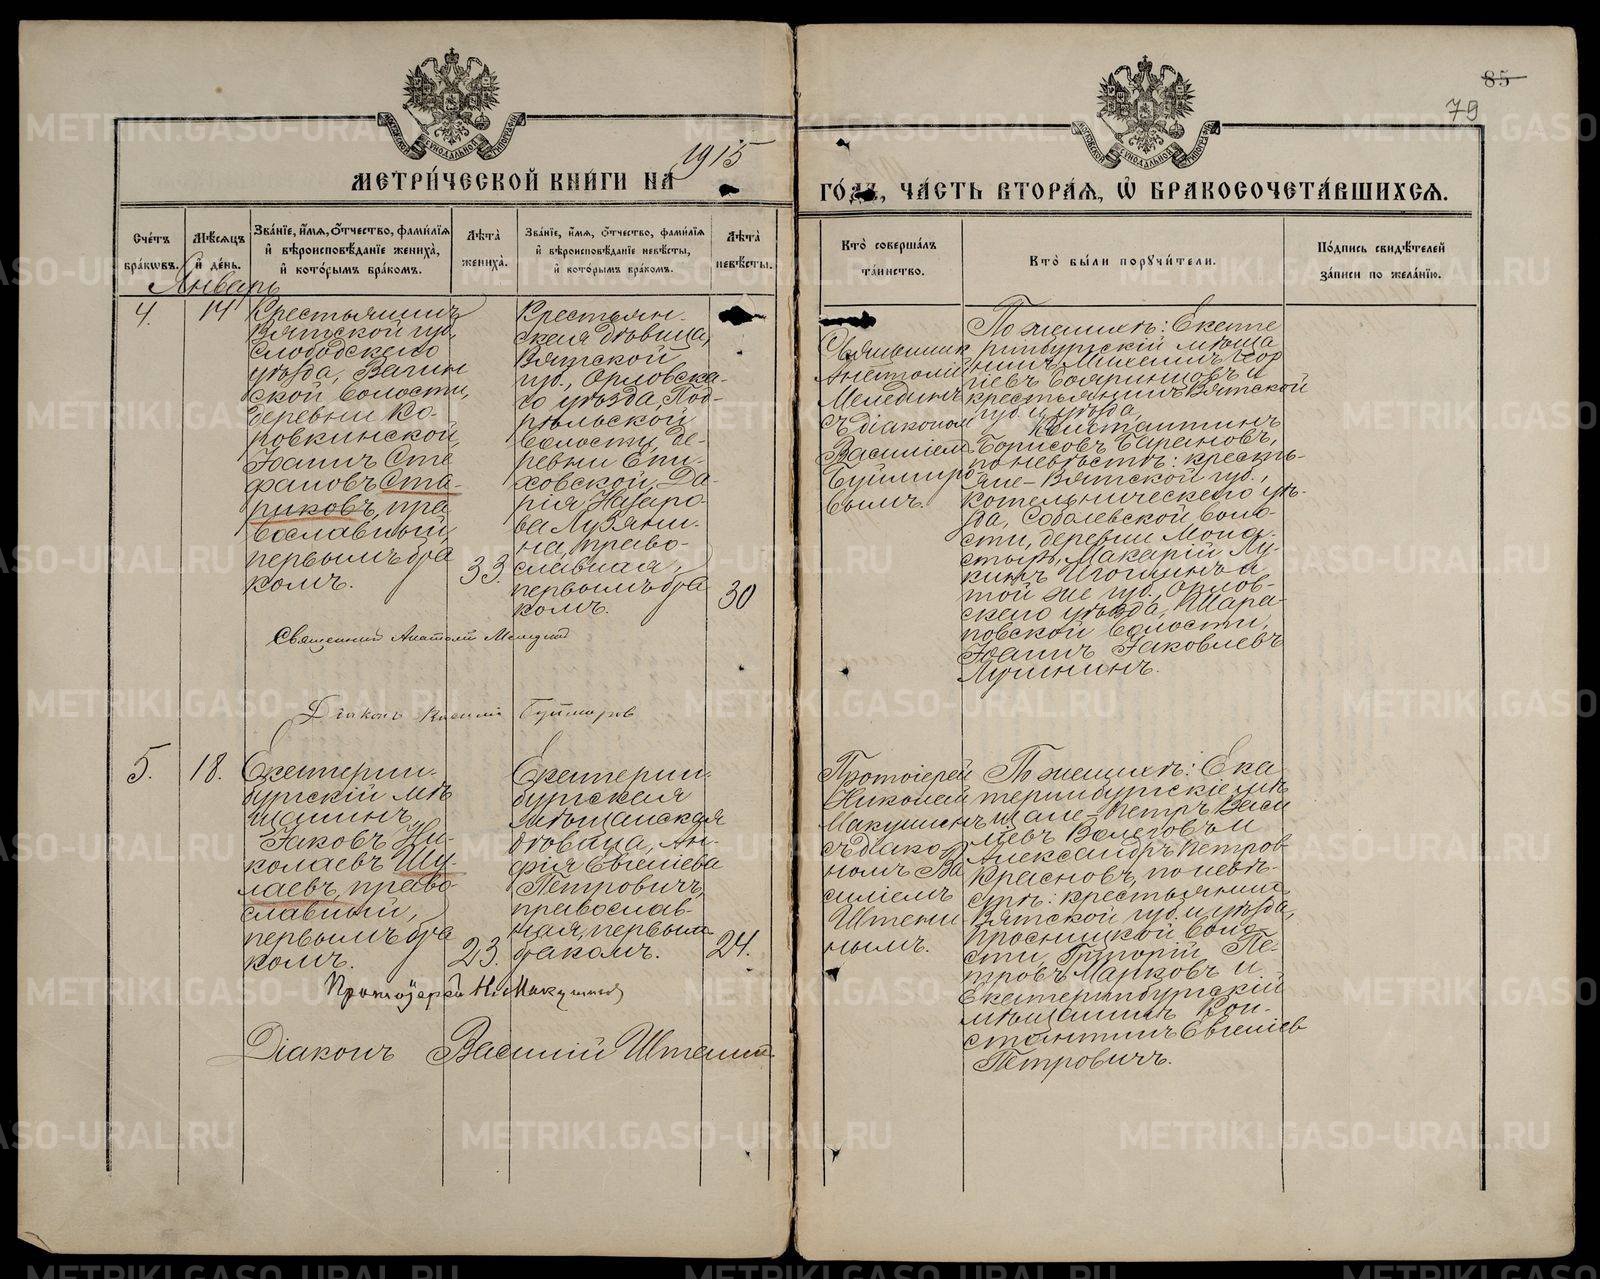 85
79
МЕТРИ́ЧЕСКОЙ КНИ́ГИ НА 1915
ГО́ДЪ, ЧА́СТЬ ВТОРА́Я, Ѽ БРАКОСОЧЕТА́ВШИХСЯ.
Сче́тъ бра́кωвъ.
Мѣ́сяцъ и҆ де́нь.
Зва́нїе, и҆́мя, ѻ҆́тчество, фами́лїя и҆ вѣроисповѣ́данїе жениха̀, и҆ кото́рымъ бра́комъ.
Лѣ́та жениха̀.
Зва́нїе, и҆́мя, ѻ҆́тчество, фами́лїя и҆ вѣроисповѣ́данїе невѣ́сты, и҆ кото́рымъ бра́комъ.
Лѣ́та невѣ́сты.
Кто̀ соверша́лъ та́инство.
Кто̀ бы́ли поручи́тели.
По́дпись свидѣ́телей за́писи по жела́нїю.
Январь
4.
14
Крестьянинъ
Вятской губ.,
Слободскаго
уѣзда, Вагин
ской волости,
деревни Ко-
ровкинской,
Іоаннъ Сте
фановъ Ста-
риковъ, пра
вославный,
первымъ бра
комъ.
33.
Крестьян-
ская дѣвица,
Вятской
губ., Орловска-
го уѣзда, Под-
рѣльской
волости, де-
ревни Епи-
ховской, Да-
рія Назаро-
ва Лузяни-
на, право-
славная,
первымъ бра
комъ.
30
Священникъ
Анатолій
Мелединъ
съ діакономъ
Василіемъ
Буймиро
вымъ.
По женихѣ: Екате
ринбургскій мѣща
нинъ Михаилъ Геор
гіевъ Бояринцовъ и
крестьянинъ Вятской
губ. и уѣзда,
Константинъ
Борисовъ Барановъ,
по невѣстѣ: кресть-
яне – Вятской губ.,
Котельническаго уѣ-
зда, Соболевской воло
сти, деревни Мона-
стырь, Макарій Лу-
кинъ Игошинъ и
той же губ., Орлов-
скаго уѣзда, Шара-
повской волости,
Іоаннъ Іаковлевъ
Лушнинъ.
Священникъ Анатолій Меледин
Діаконъ Василій Буймиров
5.
18.
Екатерин-
бургскій мѣ
щанинъ,
Іаковъ Ни-
колаевъ Шу-
лаевъ, право
славный,
первымъ бра
комъ.
23.
Екатерин-
бургская
мѣщанская
дѣвица, Ан-
фія Евгеніева
Петровичъ,
православ-
ная, первым
бракомъ.
24.
Протоіерей
Николай
Макушинъ
съ діако-
номъ Ва
силіемъ
Штени
нымъ.
По женихѣ: Ека
теринбургскіе мѣ
щане – Петръ Васи
льевъ Волеговъ и
Александръ Петров
Красновъ, по невѣ-
стѣ: крестьянинъ
Вятской губ. и уѣзда,
Просницкой воло
сти, Григорій Пе-
тровъ Марковъ и
Екатеринбургскій
мѣщанинъ Кон-
стантинъ Евгеніев
Петровичъ.
Протоіерей Н. Макушинъ
Діаконъ Василій Штенин
METRIKI.GASO-URAL.RU